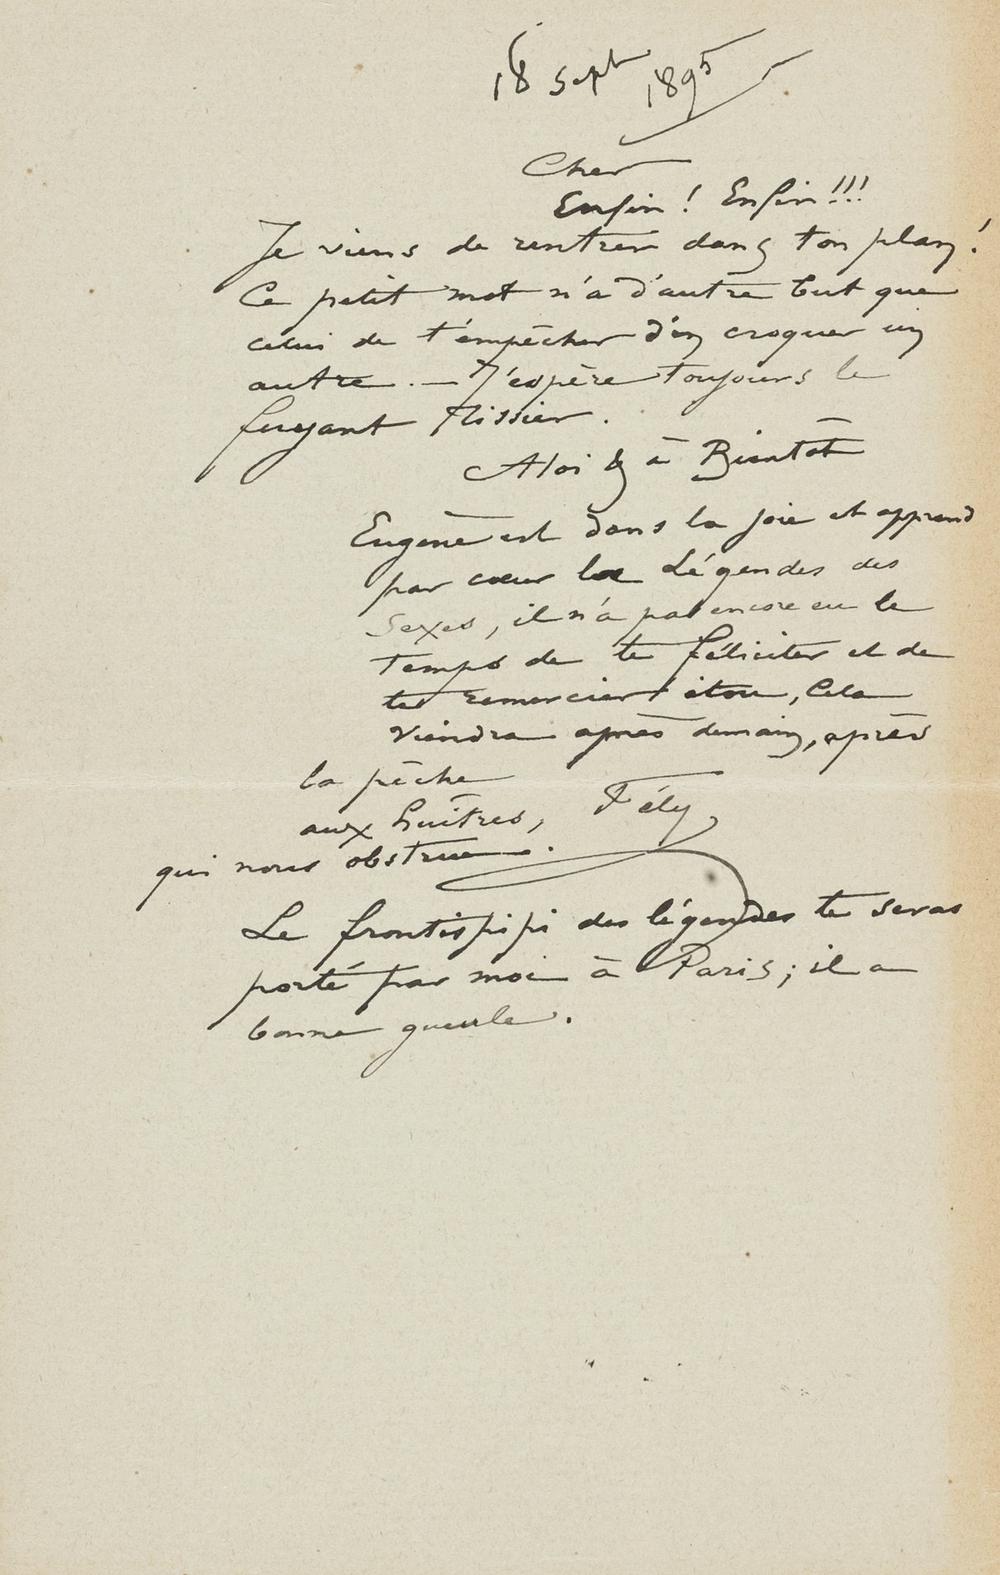 18 Sept 1895
Cher
Enfin ! Enfin !!!
Je viens de rentrer dans ton plan !
Ce petit mot n'a d'autre but que
celui de t'empêcher d'en croquer un
autre . — J'espère toujours le
fuyant Tissier .
A toi & à Bientôt
Eugène est dans la joie et apprend
par cœur la Légendes des
Sexes, il n'a pas encore eu le
temps de te féliciter et de
te remercier itou, Cela
viendra après demain, après
la pêche
aux huîtres, Fély
qui nous obstrue .
Le frontispipi des légendes te seras
porté par moi à Paris ; il a
bonne gueule .